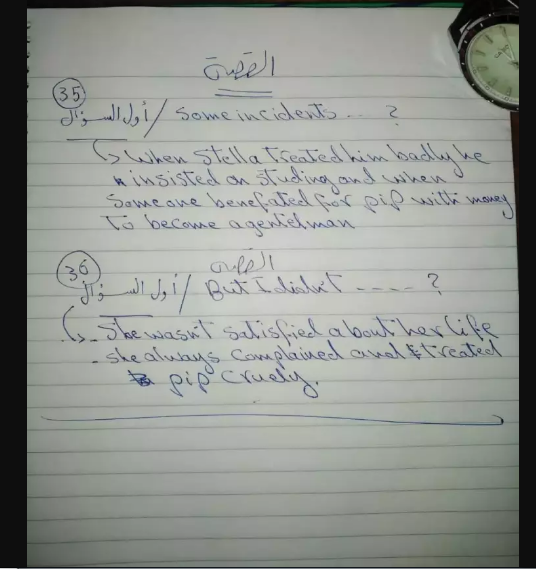 القصة
35
أول السؤال / Some incidents .... ?
When Stella treated him badly he
insisted on studing and when
someone benefated for pip with money
to become agentelman
القصة
36
أول السؤال / But I didn't ---- ?
- She wasn't satisfied about her life
- she always complained and treated
pip cruely.